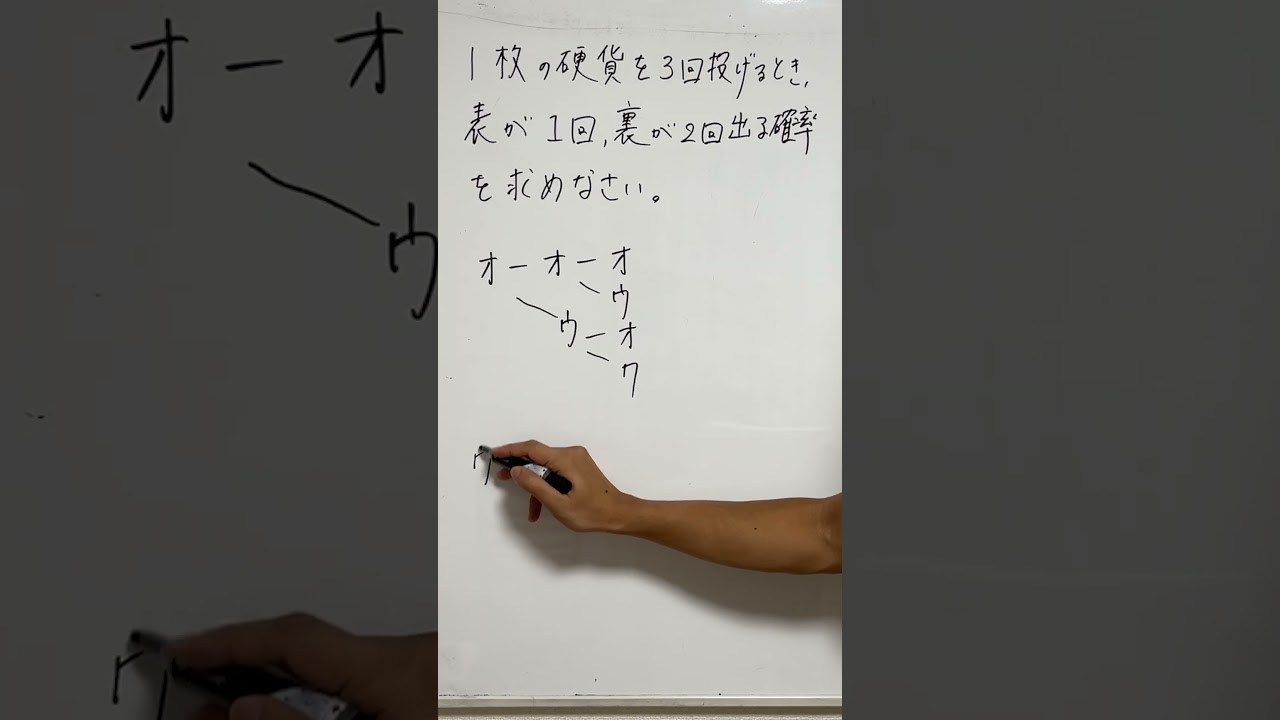 1枚の硬貨を3回投げるとき,
表が1回,裏が2回出る確率
を求めなさい。
オ － オ － オ
ウ
ウ － オ
ウ
ウ